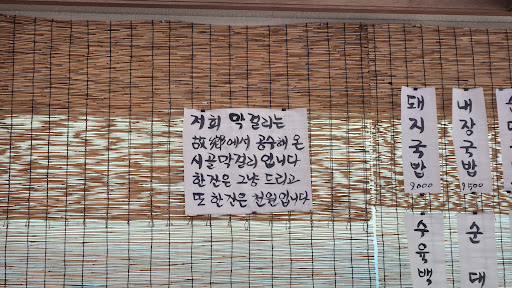 저희 막걸리는
故鄕에서 공수해 온
시골막걸리 입니다
한잔은 그냥 드리고
또 한잔은 천원입니다
돼지국밥
9000
내장국밥
9500
수육백
순대